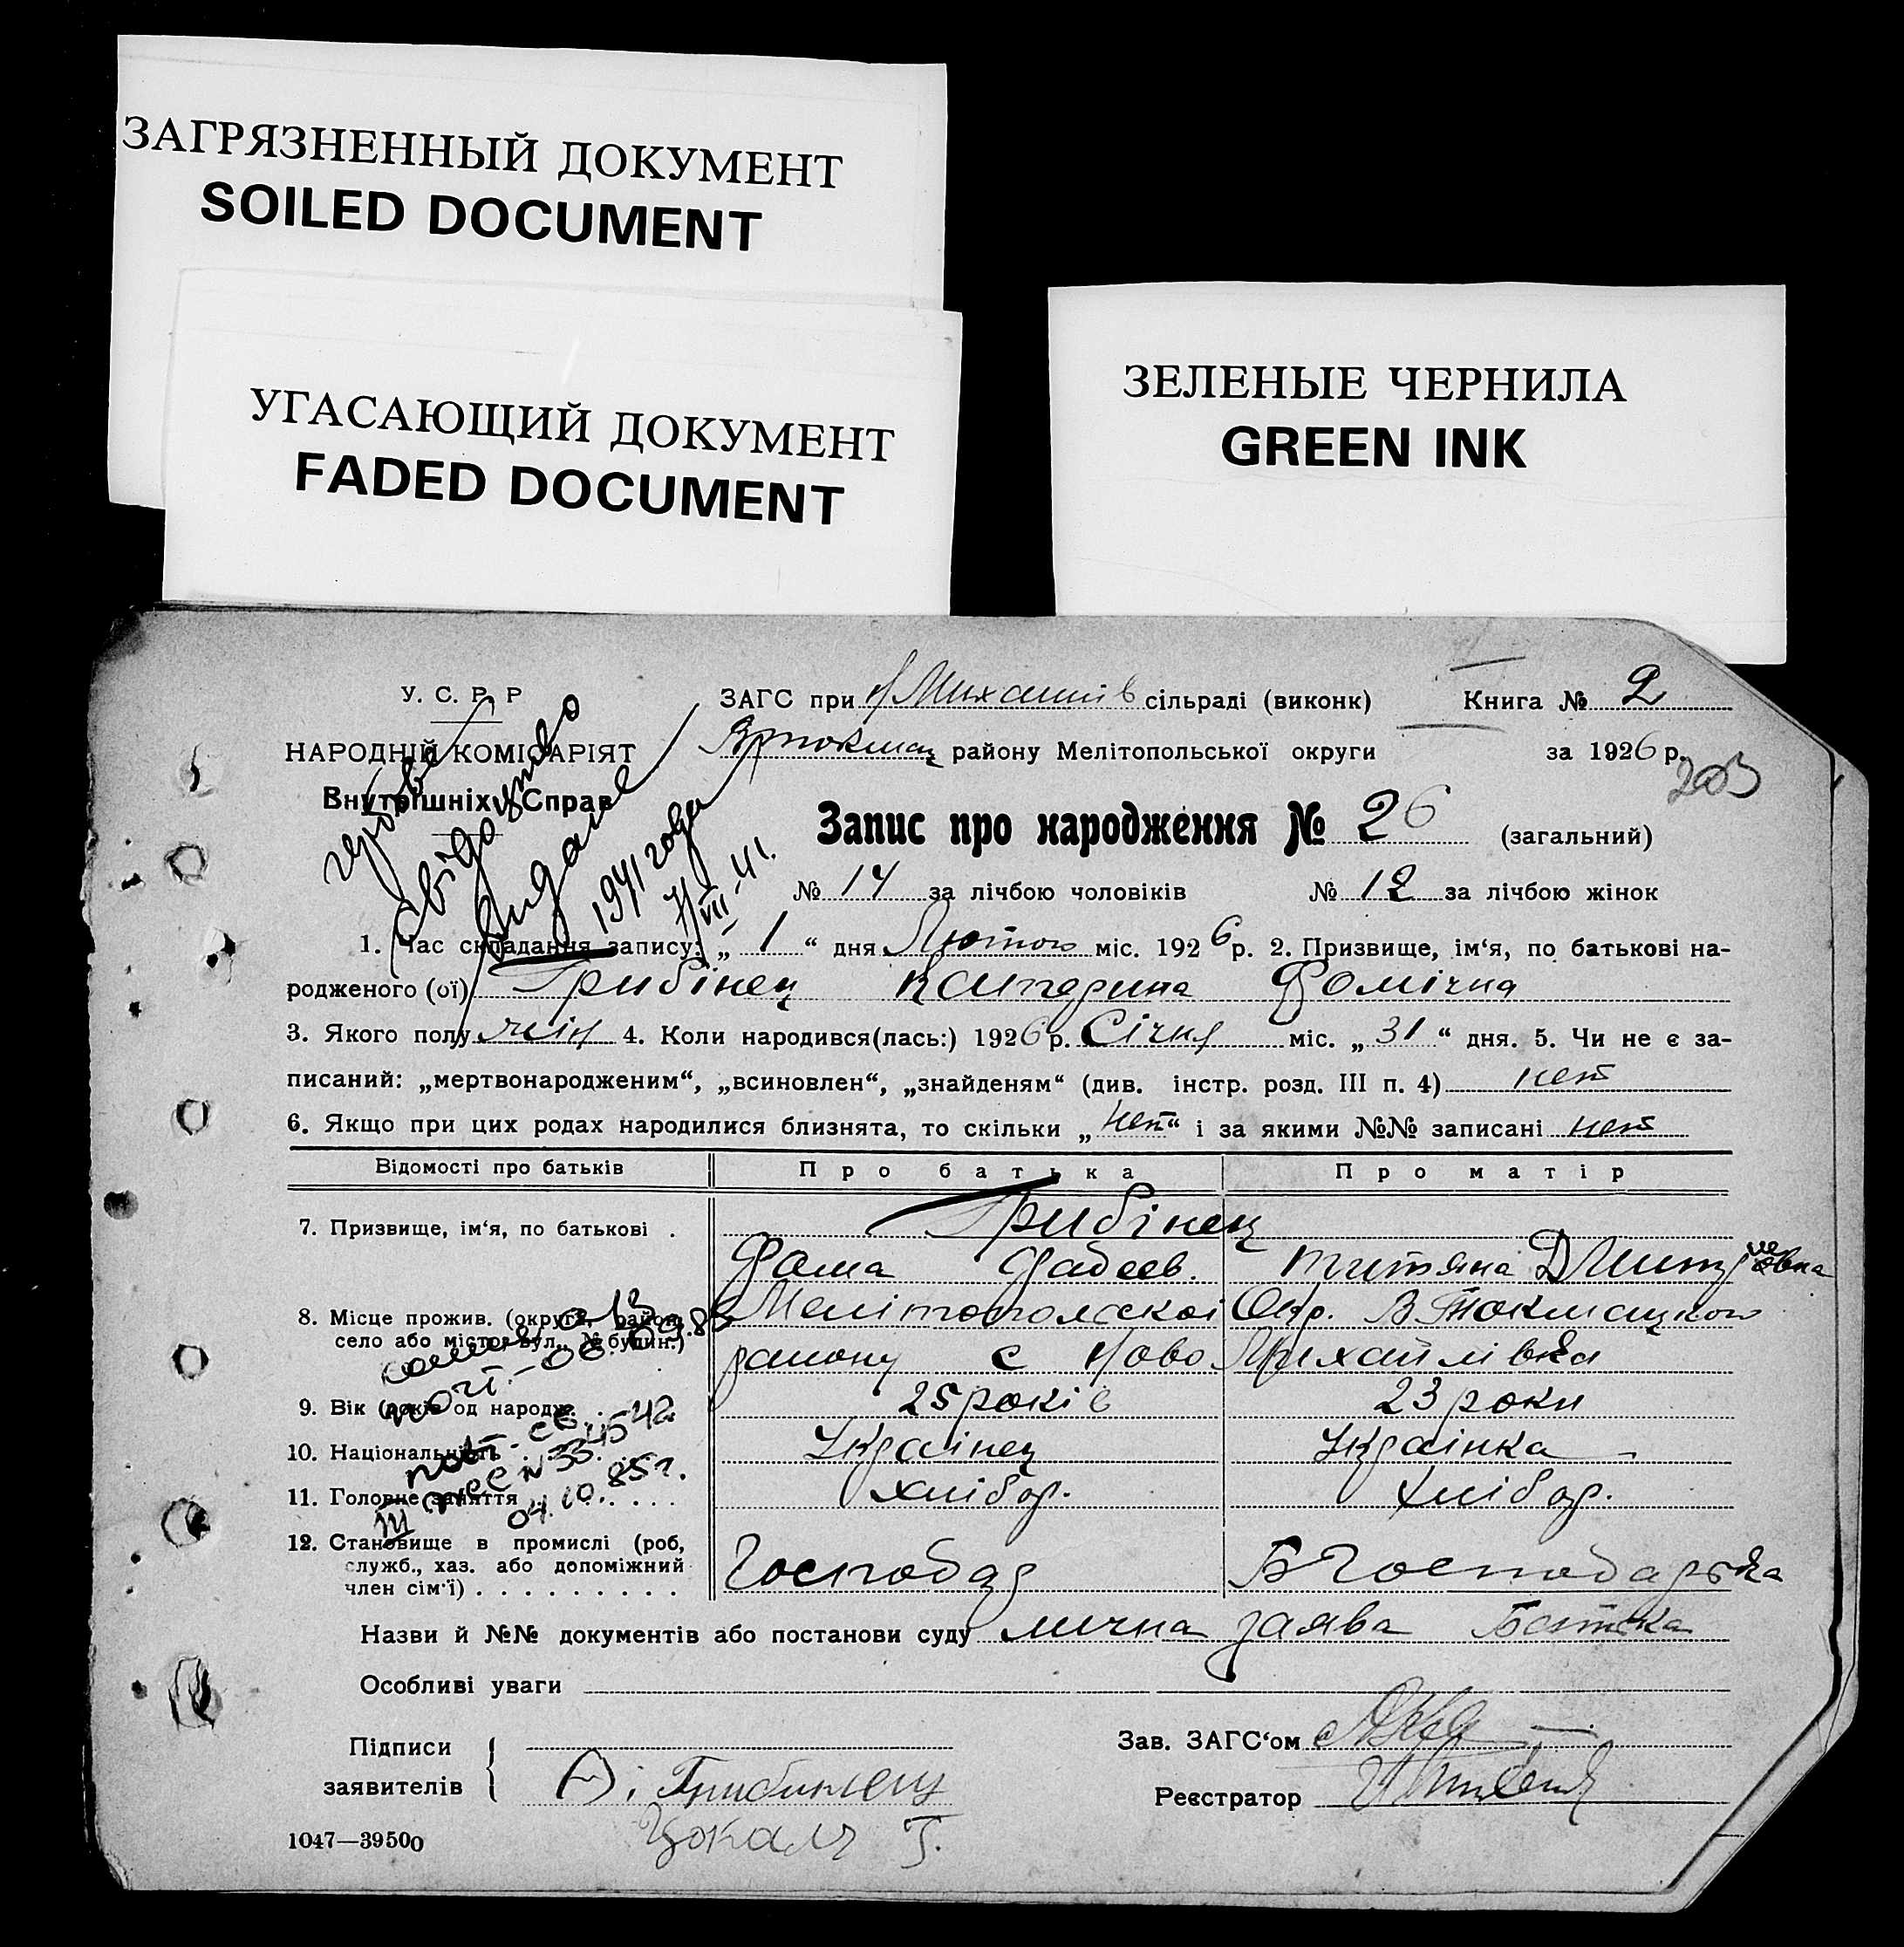 ЗАГРЯЗНЕННЫЙ ДОКУМЕНТ
SOILED DOCUMENT
УГАСАЮЩИЙ ДОКУМЕНТ
FADED DOCUMENT
ЗЕЛЕНЫЕ ЧЕРНИЛА
GREEN INK
У. С. Р. Р
НАРОДНІЙ КОМІСАРІЯТ
Внутрішніх Справ
ЗАГС при Н Михайлів сільраді (виконк) Книга № 2
Втокмац району Мелітопольської округи за 1926 р.
203
Запис про народження № 26 (загальний)
№ 14 за лічбою чоловіків № 12 за лічбою жінок
свідоцтво
видане
1941 года
7/VIII-41.
1. Час складання запису: „ 1 “ дня Лютого міс. 1926 р. 2. Призвище, ім‘я, по батькові на-
родженого (ої) Грибінец Катерина Фомічна
3. Якого полу жін 4. Коли народився(лась:) 1926 р. Січня міс. „ 31 “ дня. 5. Чи не є за-
писаний: „мертвонародженим“, „всиновлен“, „знайденям“ (див. інстр. розд. III п. 4) нет
6. Якщо при цих родах народилися близнята, то скільки „ нет “ і за якими №№ записані нет
Відомості про батьків Про батька Про матір
7. Призвище, ім‘я, по батькові . Грибінец
Фома Фадеев. Титяна Дмитровна
8. Місце прожив. (округа, район, село або місто, вул., № будин.) Мелітополскоі Окр. В. Токмацкого
району с Ново Михайлівка
9. Вік (років од народж. 25 років 23 роки
10. Національність Украінец Украінка
11. Головне заняття хлібор. Хлібор.
04.10.85 г.
12. Становище в промислі (роб, служб., хаз. або допоміжний член сім‘ї) Господар Господарька
Назви й №№ документів або постанови суду лична заява Батька
Особливі уваги
Підписи
заявителів
Грибинец
Цокало Т.
Зав. ЗАГС‘ом
Реєстратор
1047—39500